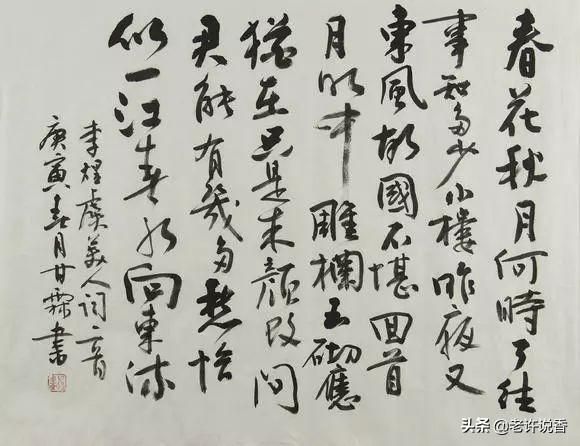 春花秋月何時了往
事知多少小樓昨夜又
東風故國不堪回首
月明中雕欄玉砌應
猶在只是朱顏改問
君能有幾多愁恰
似一江春水向東流
李煜虞美人词一首
庚寅春月甘霖書
头条 @老许说香